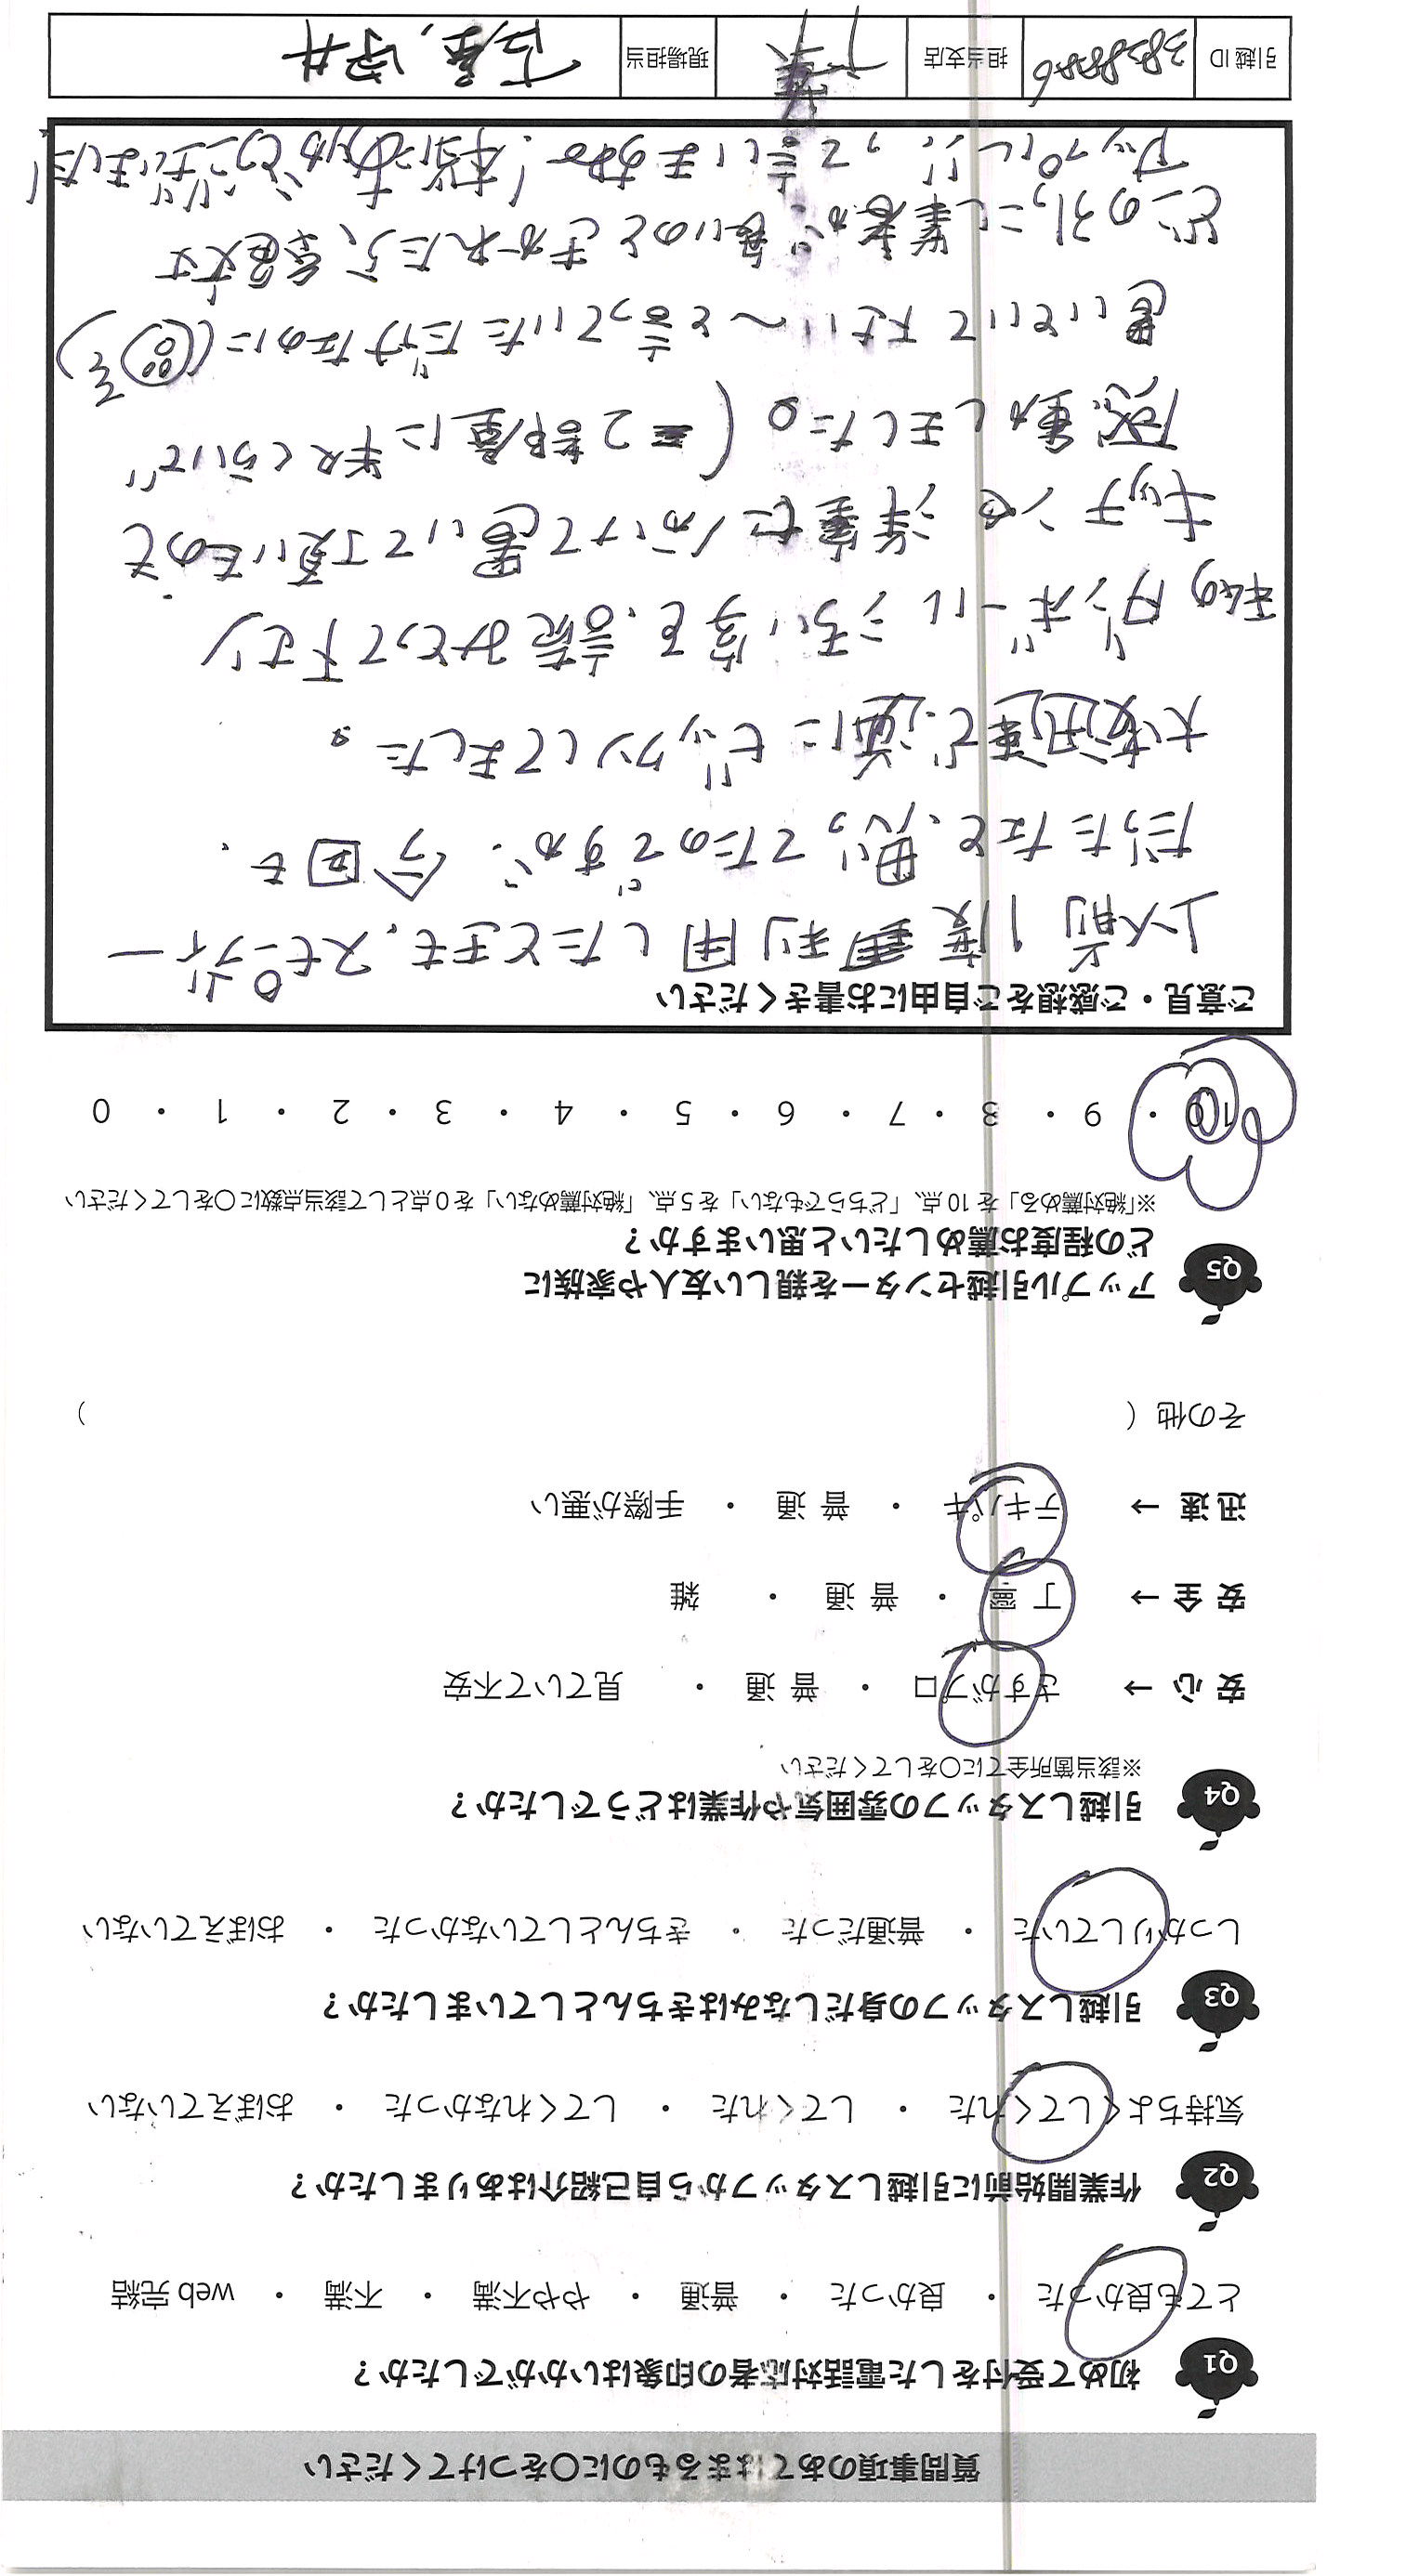 質問事項のあてはまるものに○をつけてください
Q1 初めて受付をした電話対応者の印象はいかがでしたか？
とても良かった ・ 良かった ・ 普通 ・ やや不満 ・ 不満 ・ web 完結
Q2 作業開始前に引越しスタッフから自己紹介はありましたか？
気持ちよくしてくれた ・ してくれた ・ してくれなかった ・ おぼえていない
Q3 引越しスタッフの身だしなみはきちんとしていましたか？
しっかりしていた ・ 普通だった ・ きちんとしていなかった ・ おぼえていない
Q4 引越しスタッフの雰囲気や作業はどうでしたか？
※該当箇所全てに○をしてください
安 心 → さすがプロ ・ 普 通 ・ 見ていて不安
安 全 → 丁 寧 ・ 普 通 ・ 雑
迅 速 → テキパキ ・ 普 通 ・ 手際が悪い
その他（ ）
Q5 アップル引越センターを親しい友人や家族に
どの程度お薦めしたいと思いますか？
※「絶対薦める」を 10 点、「どちらでもない」を 5 点、「絶対薦めない」を 0 点として該当点数に○をしてください
10 ・ 9 ・ 8 ・ 7 ・ 6 ・ 5 ・ 4 ・ 3 ・ 2 ・ 1 ・ 0
ご意見・ご感想をご自由にお書きください
以前1度利用したときも、スピーディー
だったなと、思ってたのですが、今回も、
大変迅速で逆にビックリしてました。
私の ダンボールうろい字を、読みとって下さり
キッチンや洋室に分けて置いて頂いたのも
感動しました。(2部屋に半々くらいで
置いといて下さい〜と言っていただけなのに(
どこの引っこし業者が良いのときかれたら、全色丈
アップルし!!って言いますね!本当にありがとうございました!
引越 ID 38288886 担当支店 千葉 現場担当 古屋,守井